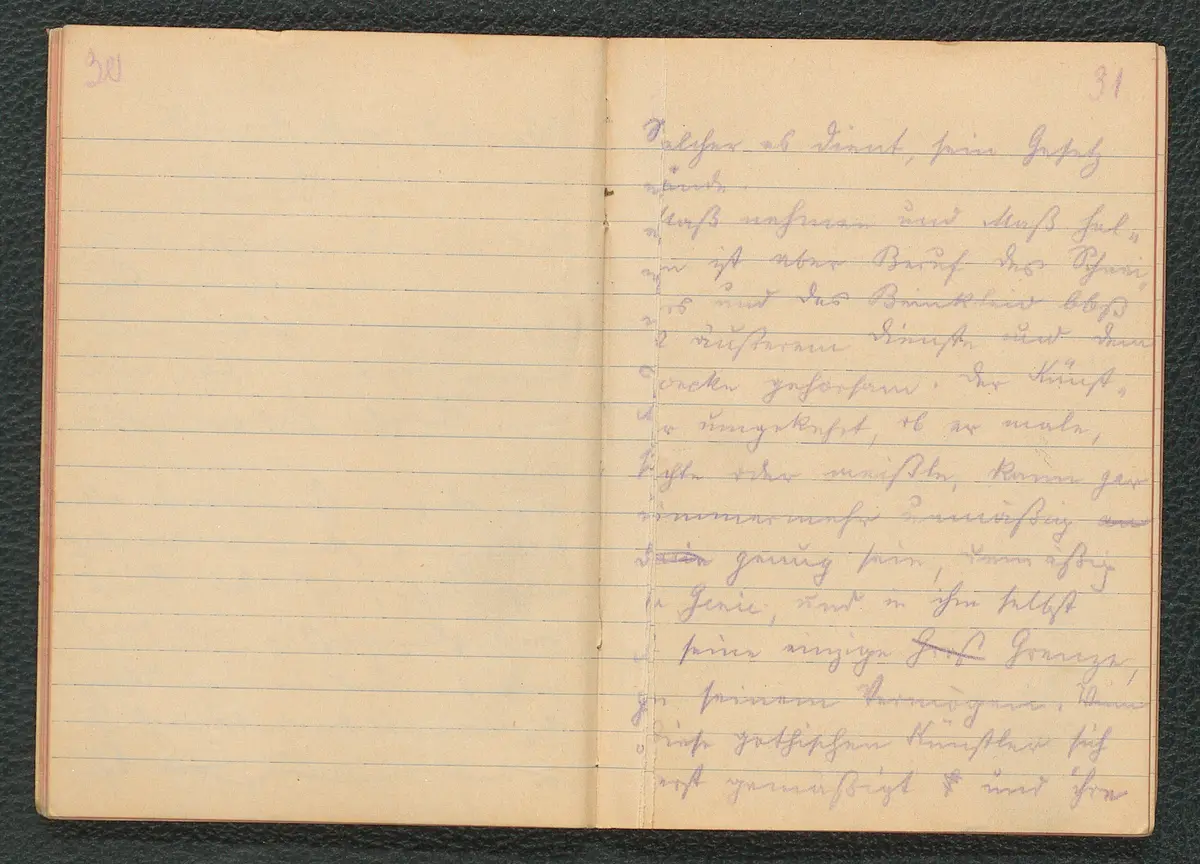 30
31
welcher es dient, sein Gesetz
ände.
Maß nehmen und Maß hal-
en ist aber Beruf des Schnei-
ers und das Beinkleid
äußerem Dienste und dem
wecke gehorsam. Der Künst-
er umgekehrt, ob er male,
ichte oder meißle, kann gar
nimmermehr unmäßig
genug sein, unmäßig
und in ihm selbst
seine einzige Grenze,
in seinem Vermögen.
diese gothischen Künstler sich
erst gemäßigt und ihre